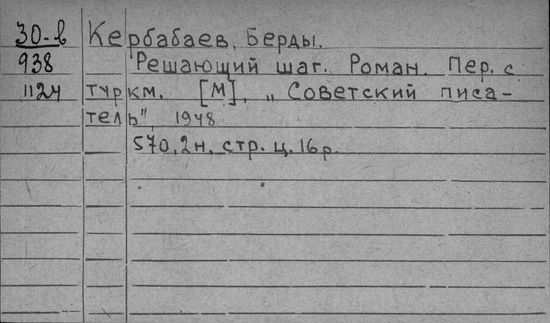 30-в Кербабаев, Берды.
938 Решающий шаг. Роман. Пер. с
1124 туркм. [М], „Советский писа-
тель", 1948
570,2н. стр. ц. 16р.